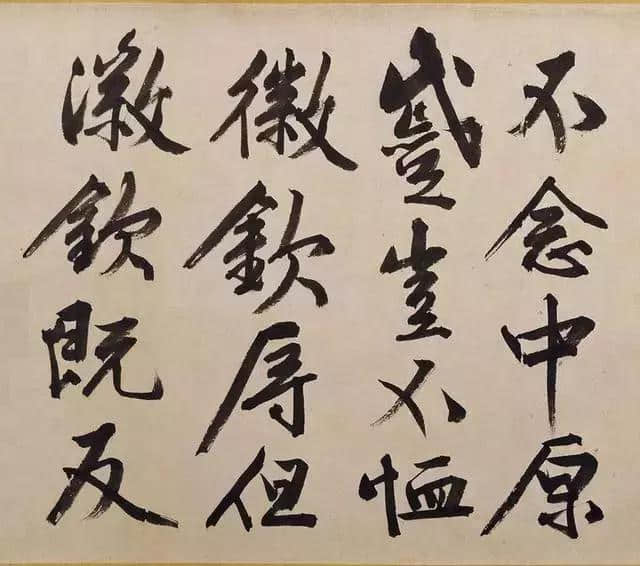 不念中原
蹙豈不恤
徽欽辱但
徽欽既反